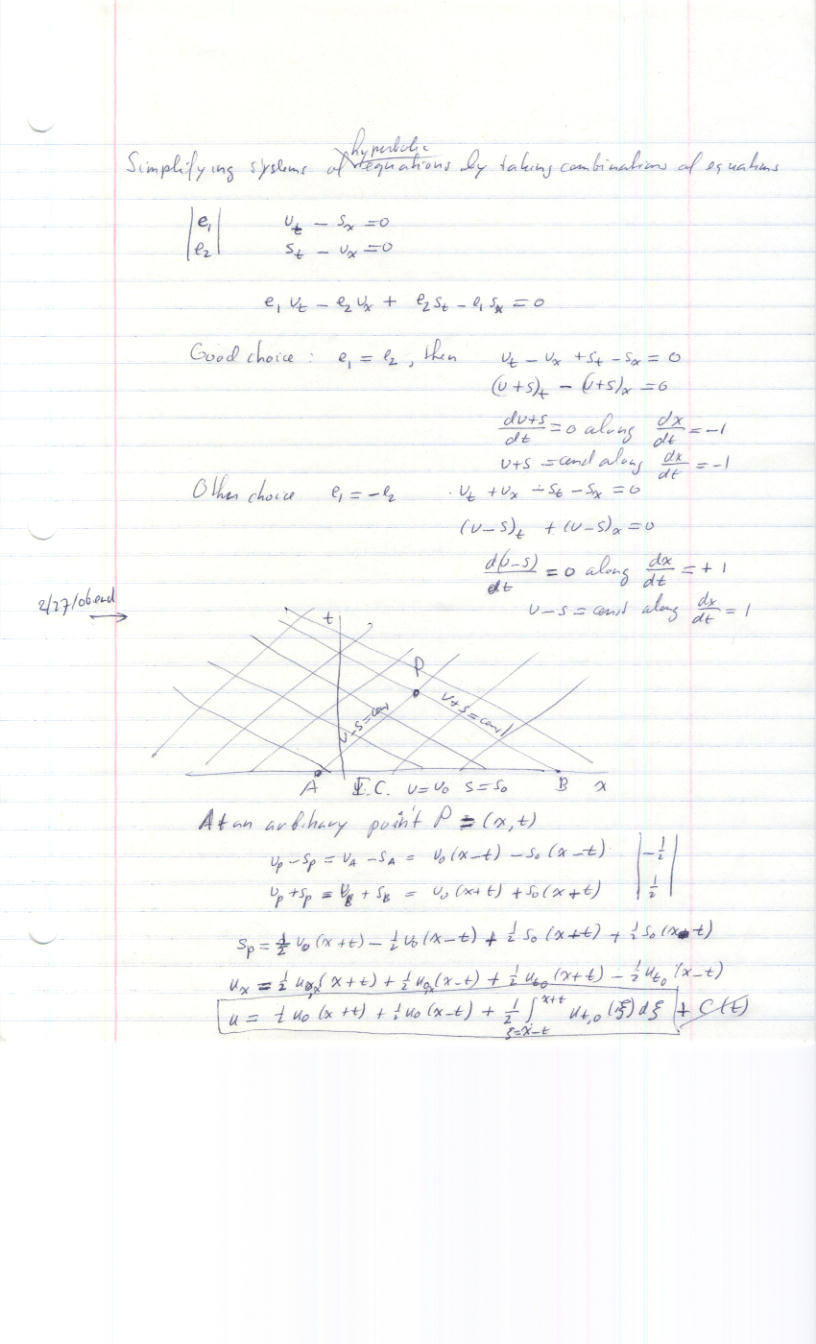 hyperbolic
Simplifying systems of equations by taking combinations of equations
|e₁| v_t − s_x = 0
|e₂| s_t − v_x = 0
e₁ v_t − e₂ v_x + e₂ s_t − e₁ s_x = 0
Good choice : e₁ = e₂ , then v_t − v_x + s_t − s_x = 0
(v+s)_t − (v+s)_x = 0
dv+s/dt = 0 along dx/dt = −1
v+s = const along dx/dt = −1
Other choice e₁ = −e₂ v_t + v_x − s_t − s_x = 0
(v−s)_t + (v−s)_x = 0
d(v−s)/dt = 0 along dx/dt = +1
2/27/06 end
v−s = const along dx/dt = 1
t
P
v−s=const v+s=const
A I.C. v=v₀ s=s₀ B x
At an arbitrary point P = (x,t)
v_P − s_P = v_A − s_A = v₀(x−t) − s₀(x−t) |−½|
v_P + s_P = v_B + s_B = v₀(x+t) + s₀(x+t) |½|
s_P = ½ v₀(x+t) − ½ v₀(x−t) + ½ s₀(x+t) + ½ s₀(x−t)
u_x = ½ u₀,ₓ(x+t) + ½ u₀ₓ(x−t) + ½ u_t₀(x+t) − ½ u_t₀(x−t)
u = ½ u₀(x+t) + ½ u₀(x−t) + ½ ∫_{ξ=x−t}^{x+t} u_{t,0}(ξ) dξ + C(t)